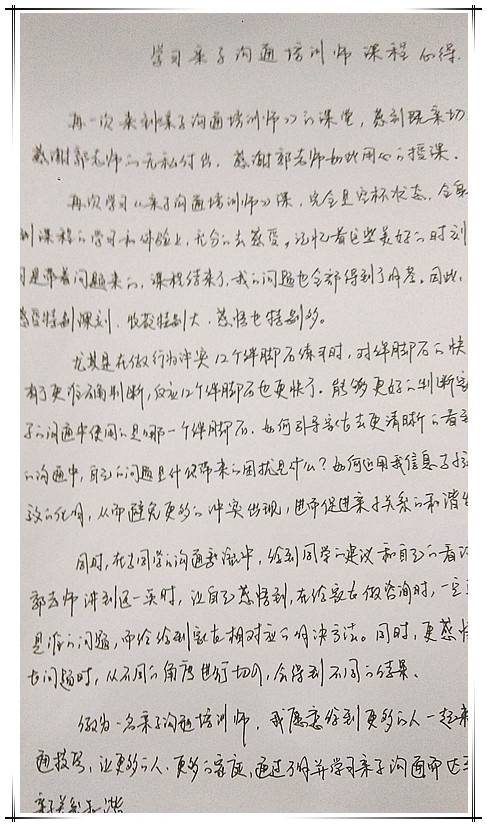 学习亲子沟通培训师课程心得
再一次来到《亲子沟通培训师》的课堂,感到既亲切
感谢郭老师的无私付出,感谢郭老师如此用心的授课。
再次学习《亲子沟通培训师》课,完全是空杯状态,全身
到课程的学习和体验上,充分的去感受,记忆着这些美好的时刻
是带着问题来的,课程结束了,我的问题也全部得到了解答。因此,
感受特别深刻、收获特别大、感悟也特别多。
尤其是在做行为冲突12个绊脚石练习时,对绊脚石的快
有了更准确判断,反应12个绊脚石也更快了。能够更好的判断
子的沟通中使用的是哪一个绊脚石,如何引导家长去更清晰的看
的沟通中,自己的问题是什么带来的困扰是什么?如何运用我信息
效的化解,从而避免更多的冲突出现,进而促进亲子关系的和谐
同时,在与同学的沟通交流中,给到同学的建议和自己的看
郭老师讲到这一点时,让自己感悟到,在给家长做咨询时,一定
是谁的问题,而给给到家长相对应的解决方法。同时,更感悟
问题时,从不同的角度进行切入,会得到不同的结果。
做为一名亲子沟通培训师,我愿意给到更多的人一起来
通技巧,让更多的人、更多的家庭,通过了解并学习亲子沟通而达
亲子关系和谐